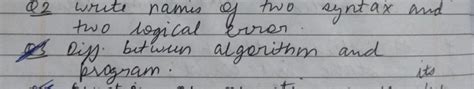 Q2 write names of two syntax and
two logical error.
Q3 Diff. between algorithm and
program.
its